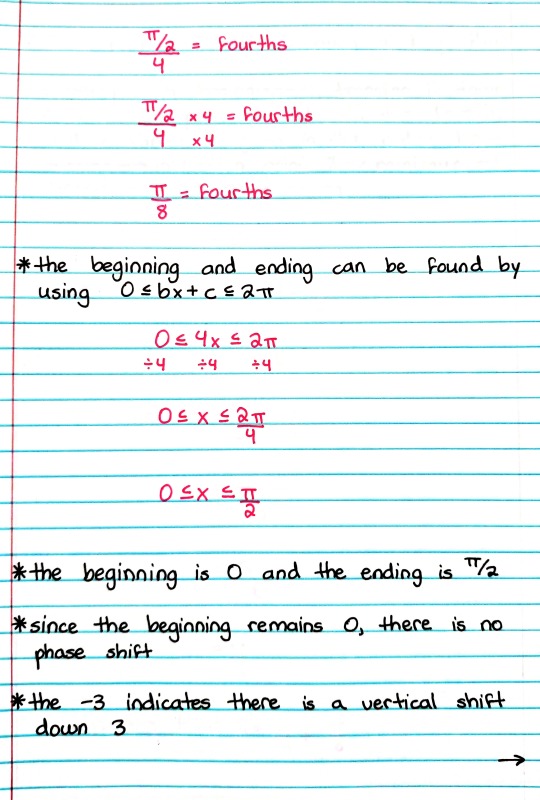 π/2 = fourths
4
π/2 × 4 = fourths
4 ×4
π = fourths
8
*the beginning and ending can be found by
using 0 ≤ bx + c ≤ 2π
0 ≤ 4x ≤ 2π
÷4 ÷4 ÷4
0 ≤ x ≤ 2π
4
0 ≤ x ≤ π
2
*the beginning is 0 and the ending is π/2
*since the beginning remains 0, there is no
phase shift
*the -3 indicates there is a vertical shift
down 3
→